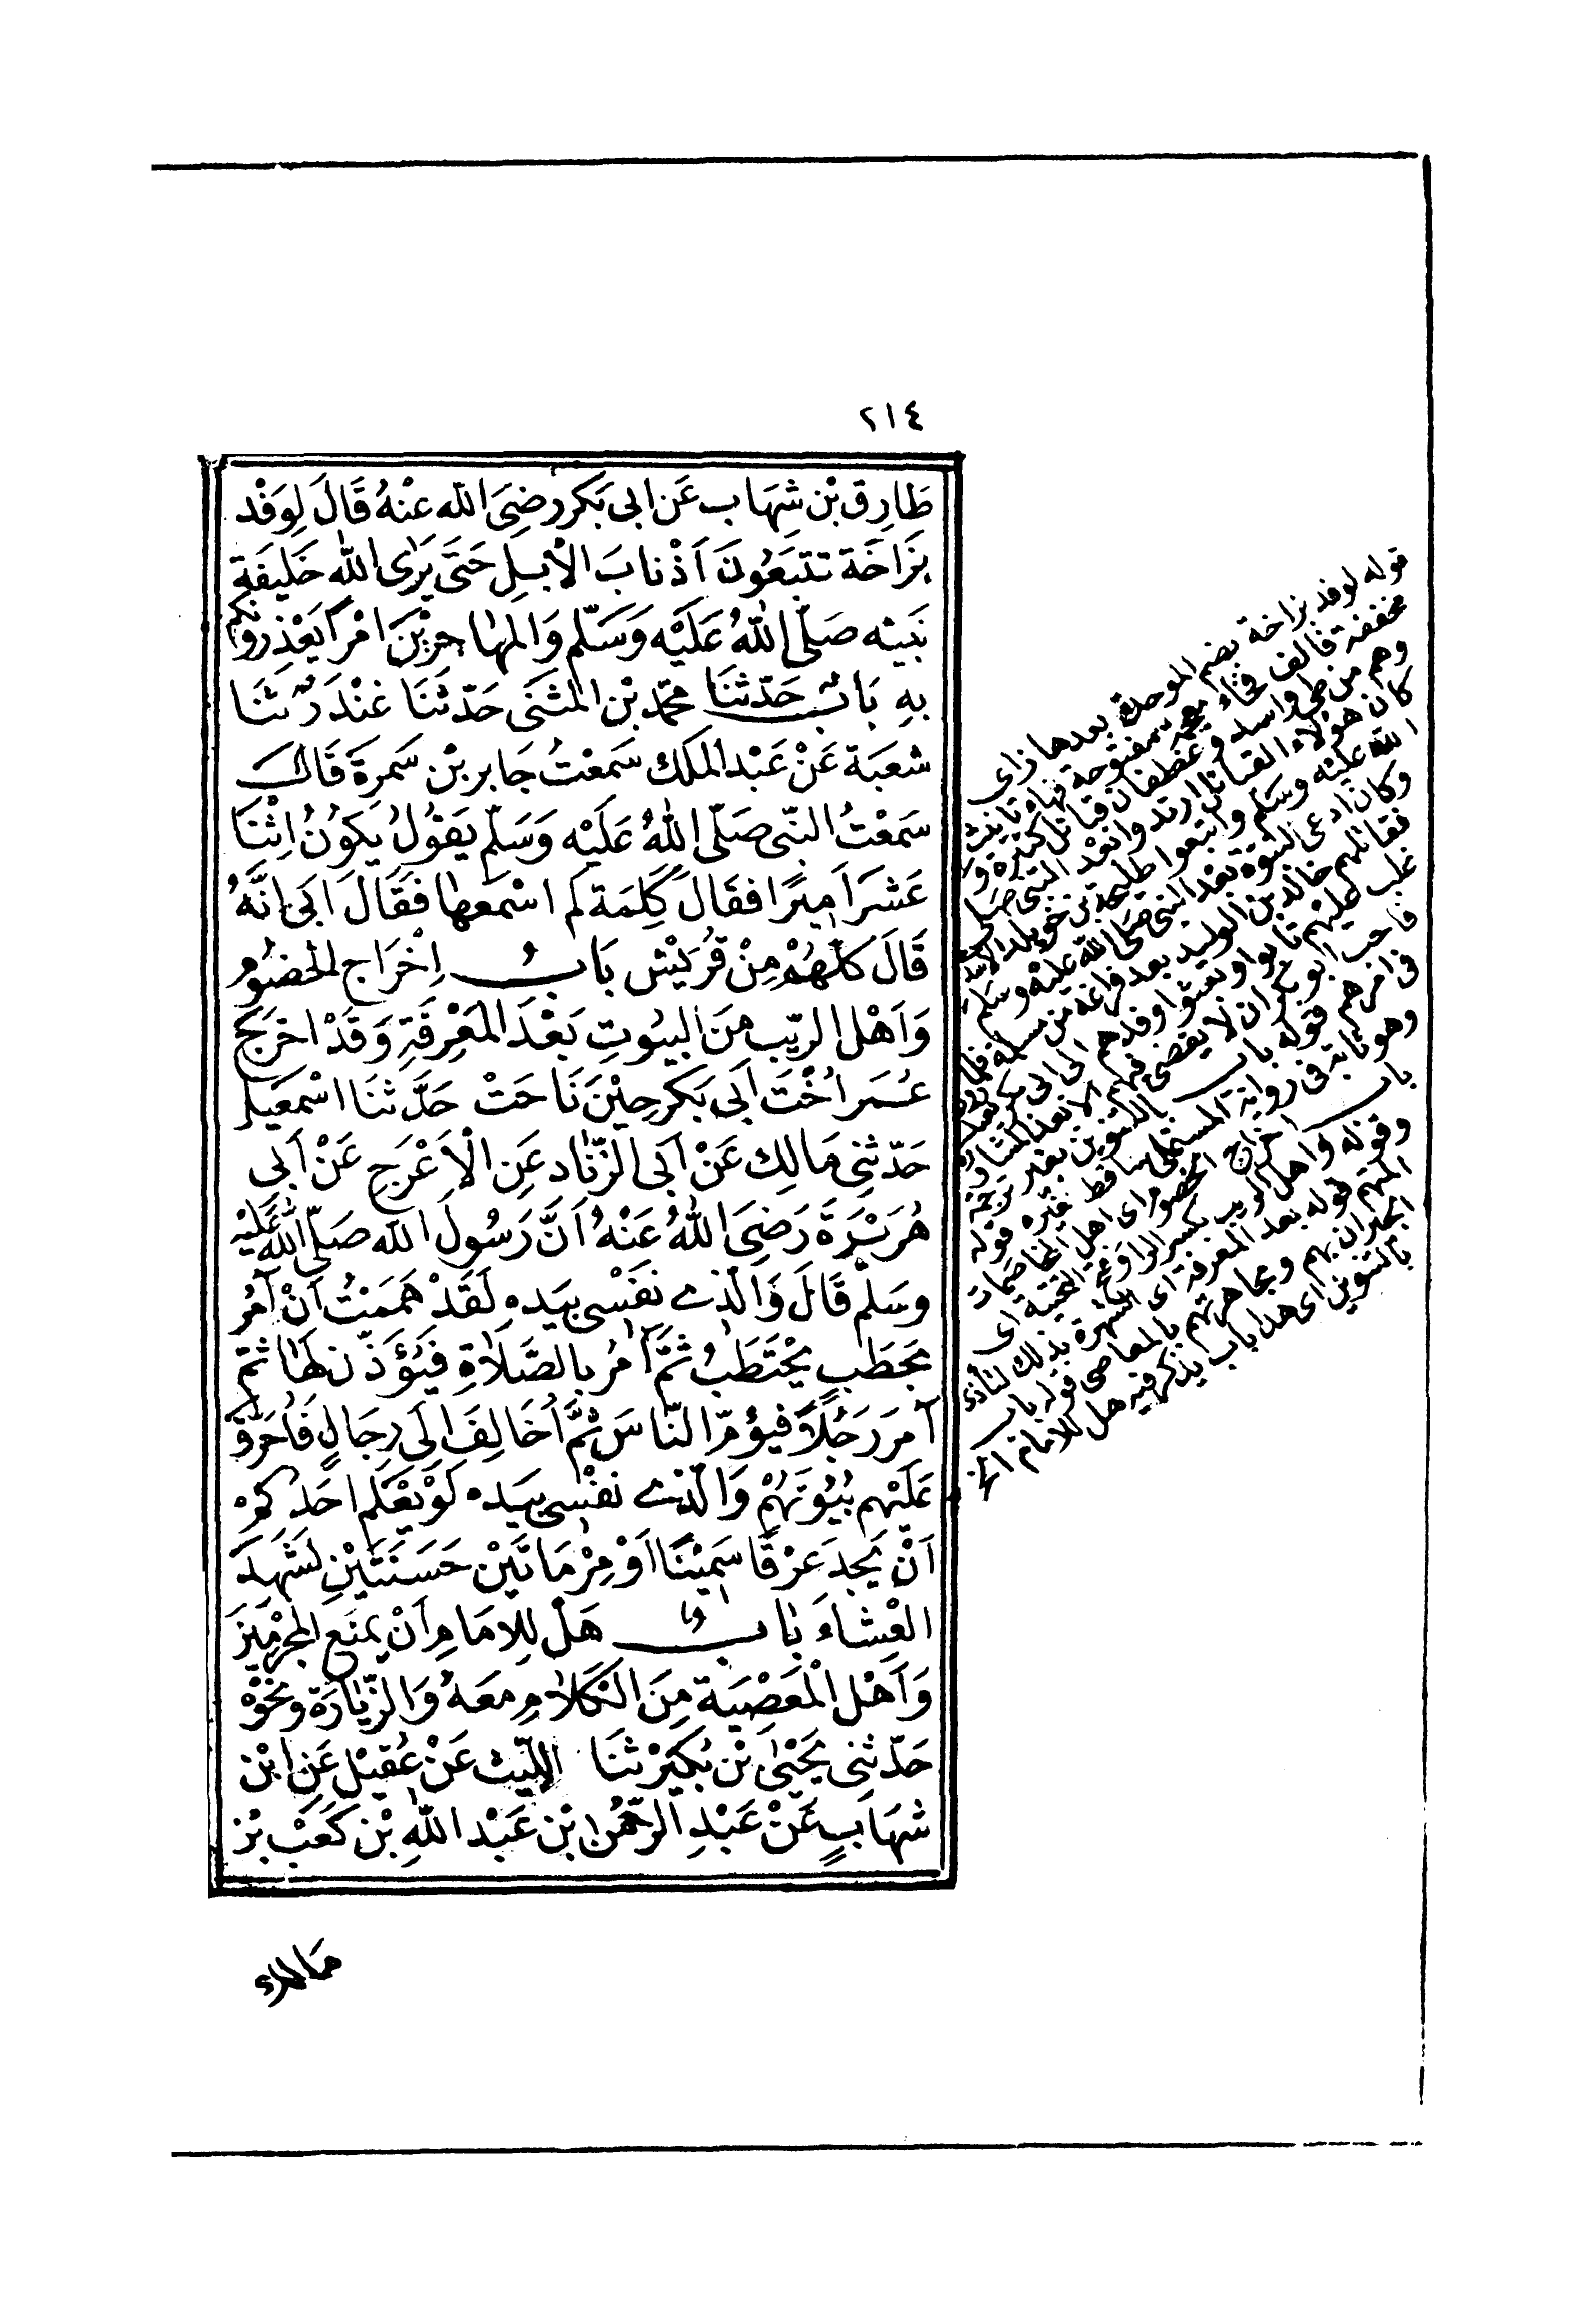 ٢١٤
طَارِق بْن شِهَاب عَن ابى بَكر رضِىَ الله عنْهُ قَالَ لِوَفْد
بزَاخَة تتبَعُونَ اَذْنابَ الْابلِ حَتَّى يَرَى اللهُ خَليفَة
نَبيّه صَلّى اللهُ عَلَيْه وَسَلّم وَالمهَاجرِيْنَ امْرًا يَعْذِرونكم
بهِ بَابٌ حَدّثنَا محمّد بْن المثَنَى حَدّثنَا غنْدَرٌ ثنَا
شعبَة عَنْ عَبْد الملك سَمعْتُ جَابر بْن سَمرَة قَالَ
سَمعْتُ النبّى صَلّى اللهُ عَلَيْه وَسَلّم يَقوُلُ يَكوُنُ اثْنَا
عَشرَ اَميرًا فقَالَ كَلِمَة لَم اسْمعهَا فقَالَ ابَى انَّهُ
قَالَ كلّهُمْ مِنْ قُرَيْش بَابُ اِخْرَاج الخصُوُم
وَاَهْل الريّب منَ البيُوتِ بَعْدَ المَعْرِفَةِ وَقَدْ اخرَجَ
عُمَر اُخْتَ اَبى بَكر حِيْنَ نَاحَتْ حَدَّثنَا اسْمَعيل
حَدّثنِى مَالِك عَنْ اَبى الزّنَاد عَنِ الْاَعْرَجِ عَنْ اَبى
هُرَيْرَةَ رَضِىَ اللهُ عَنْهُ اَنَّ رَسُولَ الله صَلّى الله عَلَيْه
وسَلّم قَالَ وَالّذِى نفَسْى بيَدهِ لَقَدْ هَممْتُ اَنْ آمُر
بحَطَبٍ يحْتَطَبُ ثمَّ آمُر بالصَّلَاةِ فيُؤَذّن لهَا ثمّ
آمرَ رَجُلًا فيؤُمّ النّاسَ ثُمَّ اُخَالِفَ الَى رِجَالٍ فَاُحَرّقَ
عَلَيْهم بُيُوتَهُمْ وَالّذِى نفْسِى بيَده لَوْ يَعْلم احَدكمْ
اَنْ يَجدَ عَرْقًا سَمِيْنًا اَوْ مِرْمَاتَيْن حَسَنَتَيْنِ لشَهدَ
العْشاءَ بَابُ هَلْ لِلامَامِ اَنْ يمنَع المجْرمِيْنَ
وَاَهْل الْمَعَصْيَة مِنَ الكَلَامِ معَهُ وَالزّيَارَة ونحَوْه
حَدّثنِى يَحْيَى بْن بُكَيرْ ثنَا الليّث عَنْ عُقيْل عَنِ ابْن
شهَابٍ عَنْ عَبْدِ الرّحْمٰن بْن عَبْد اللّهِ بْن كَعَبْ بْن
قوله لوفد بزاخة بضم الموحدة بعدها زاى
مخففة فالف فخاء معجمة مفتوحة فهاء تانيث
وهم من طى واسد وغطفان قبائل كثيرة و
كان هؤلاء القبائل ارتدوا بعْد النبى صلى
الله عليْه وسَلم واتبعوا طليحة بن خويلد الاسدى
وكان ادعى النبوة بعْد النبى صلى الله عليْه وسلم
فقاتلهم خالد بن الوليد بعد فراغه من مسيلمة فلما
غلب عليْهم تابوا وبعثوا وفدهم الى ابى بكر
فاحب ابو بكر ان لا يقضى فيهم الا بعد المشاورة
فى امرهم قوله باب بالتنوين بغير ترجمة
وهو ثابت فى رواية المستملى ساقط لغيره قوله
باب اخراج الخصوم اى اهل المخاصمات
وقوله واهل الريب بكسر الراء وفتح التحتية اى
المتهم قوله بعد المعرفة اى الشهرة بذلك لتأذى
الجيران بهم ومجاهرتهم بالمعاصى قوله باب
بالتنوين اى هذا باب يذكر فيه هل للامام الخ